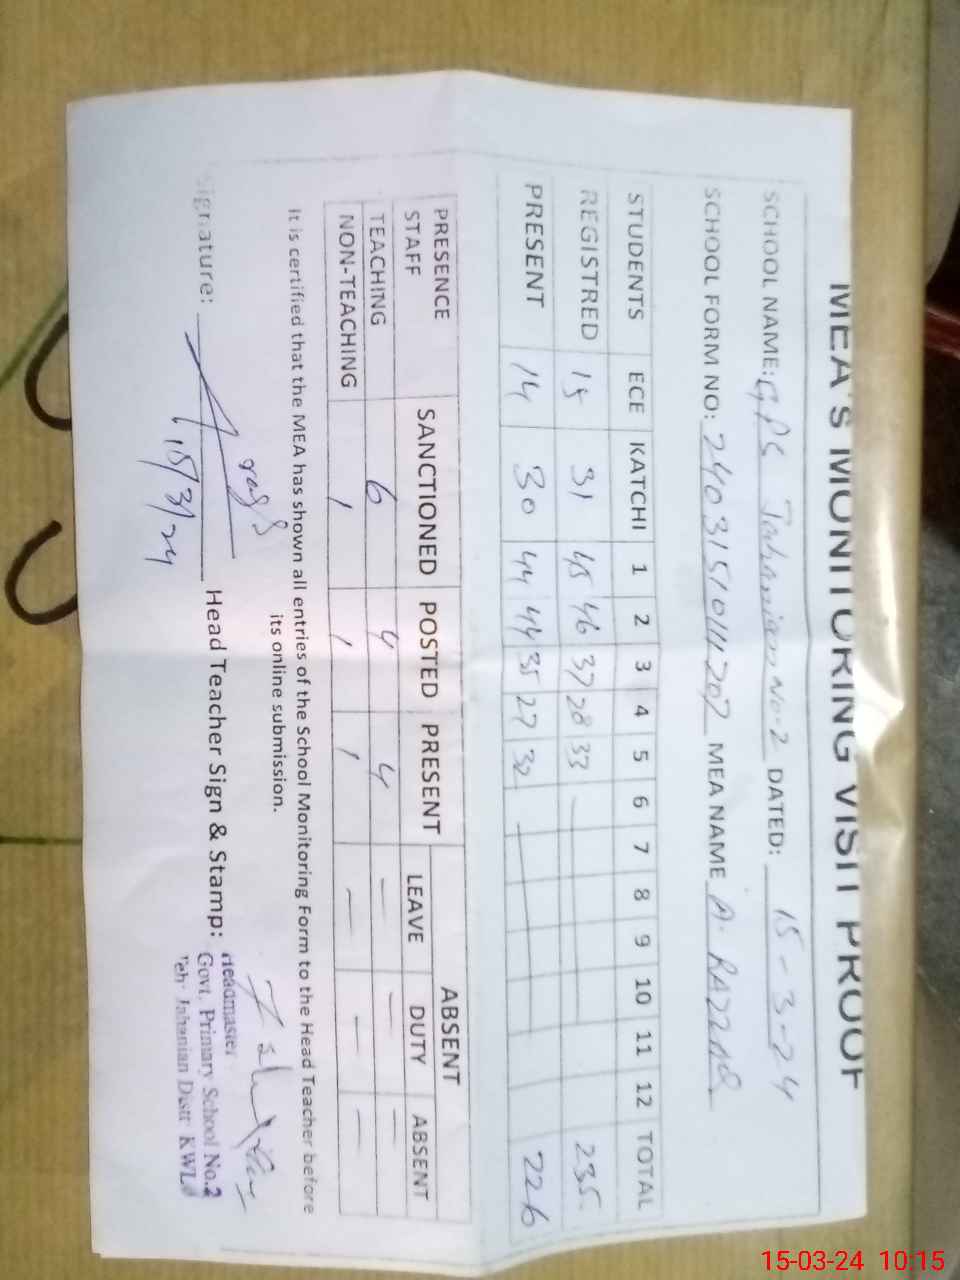 MEA'S MONITORING VISIT PROOF
SCHOOL NAME: GPS Jahanian No-2 DATED: 15-3-24
SCHOOL FORM NO: MEA NAME A. RAZZAQ
STUDENTS ECE KATCHI 1 2 3 4 5 6 7 8 9 10 11 12 TOTAL
REGISTRED 15 31 45 46 37 28 33 235
PRESENT 14 30 44 44 35 27 32 226
PRESENCE STAFF SANCTIONED POSTED PRESENT ABSENT
LEAVE DUTY ABSENT
TEACHING 6 4 4 — — —
NON-TEACHING 1 1 1 — — —
It is certified that the MEA has shown all entries of the School Monitoring Form to the Head Teacher before
its online submission.
Signature: 15/3/24 Head Teacher Sign & Stamp:
Headmaster
Govt. Primary School No.2
Teh: Jahanian Distt: KWL
15-03-24 10:15